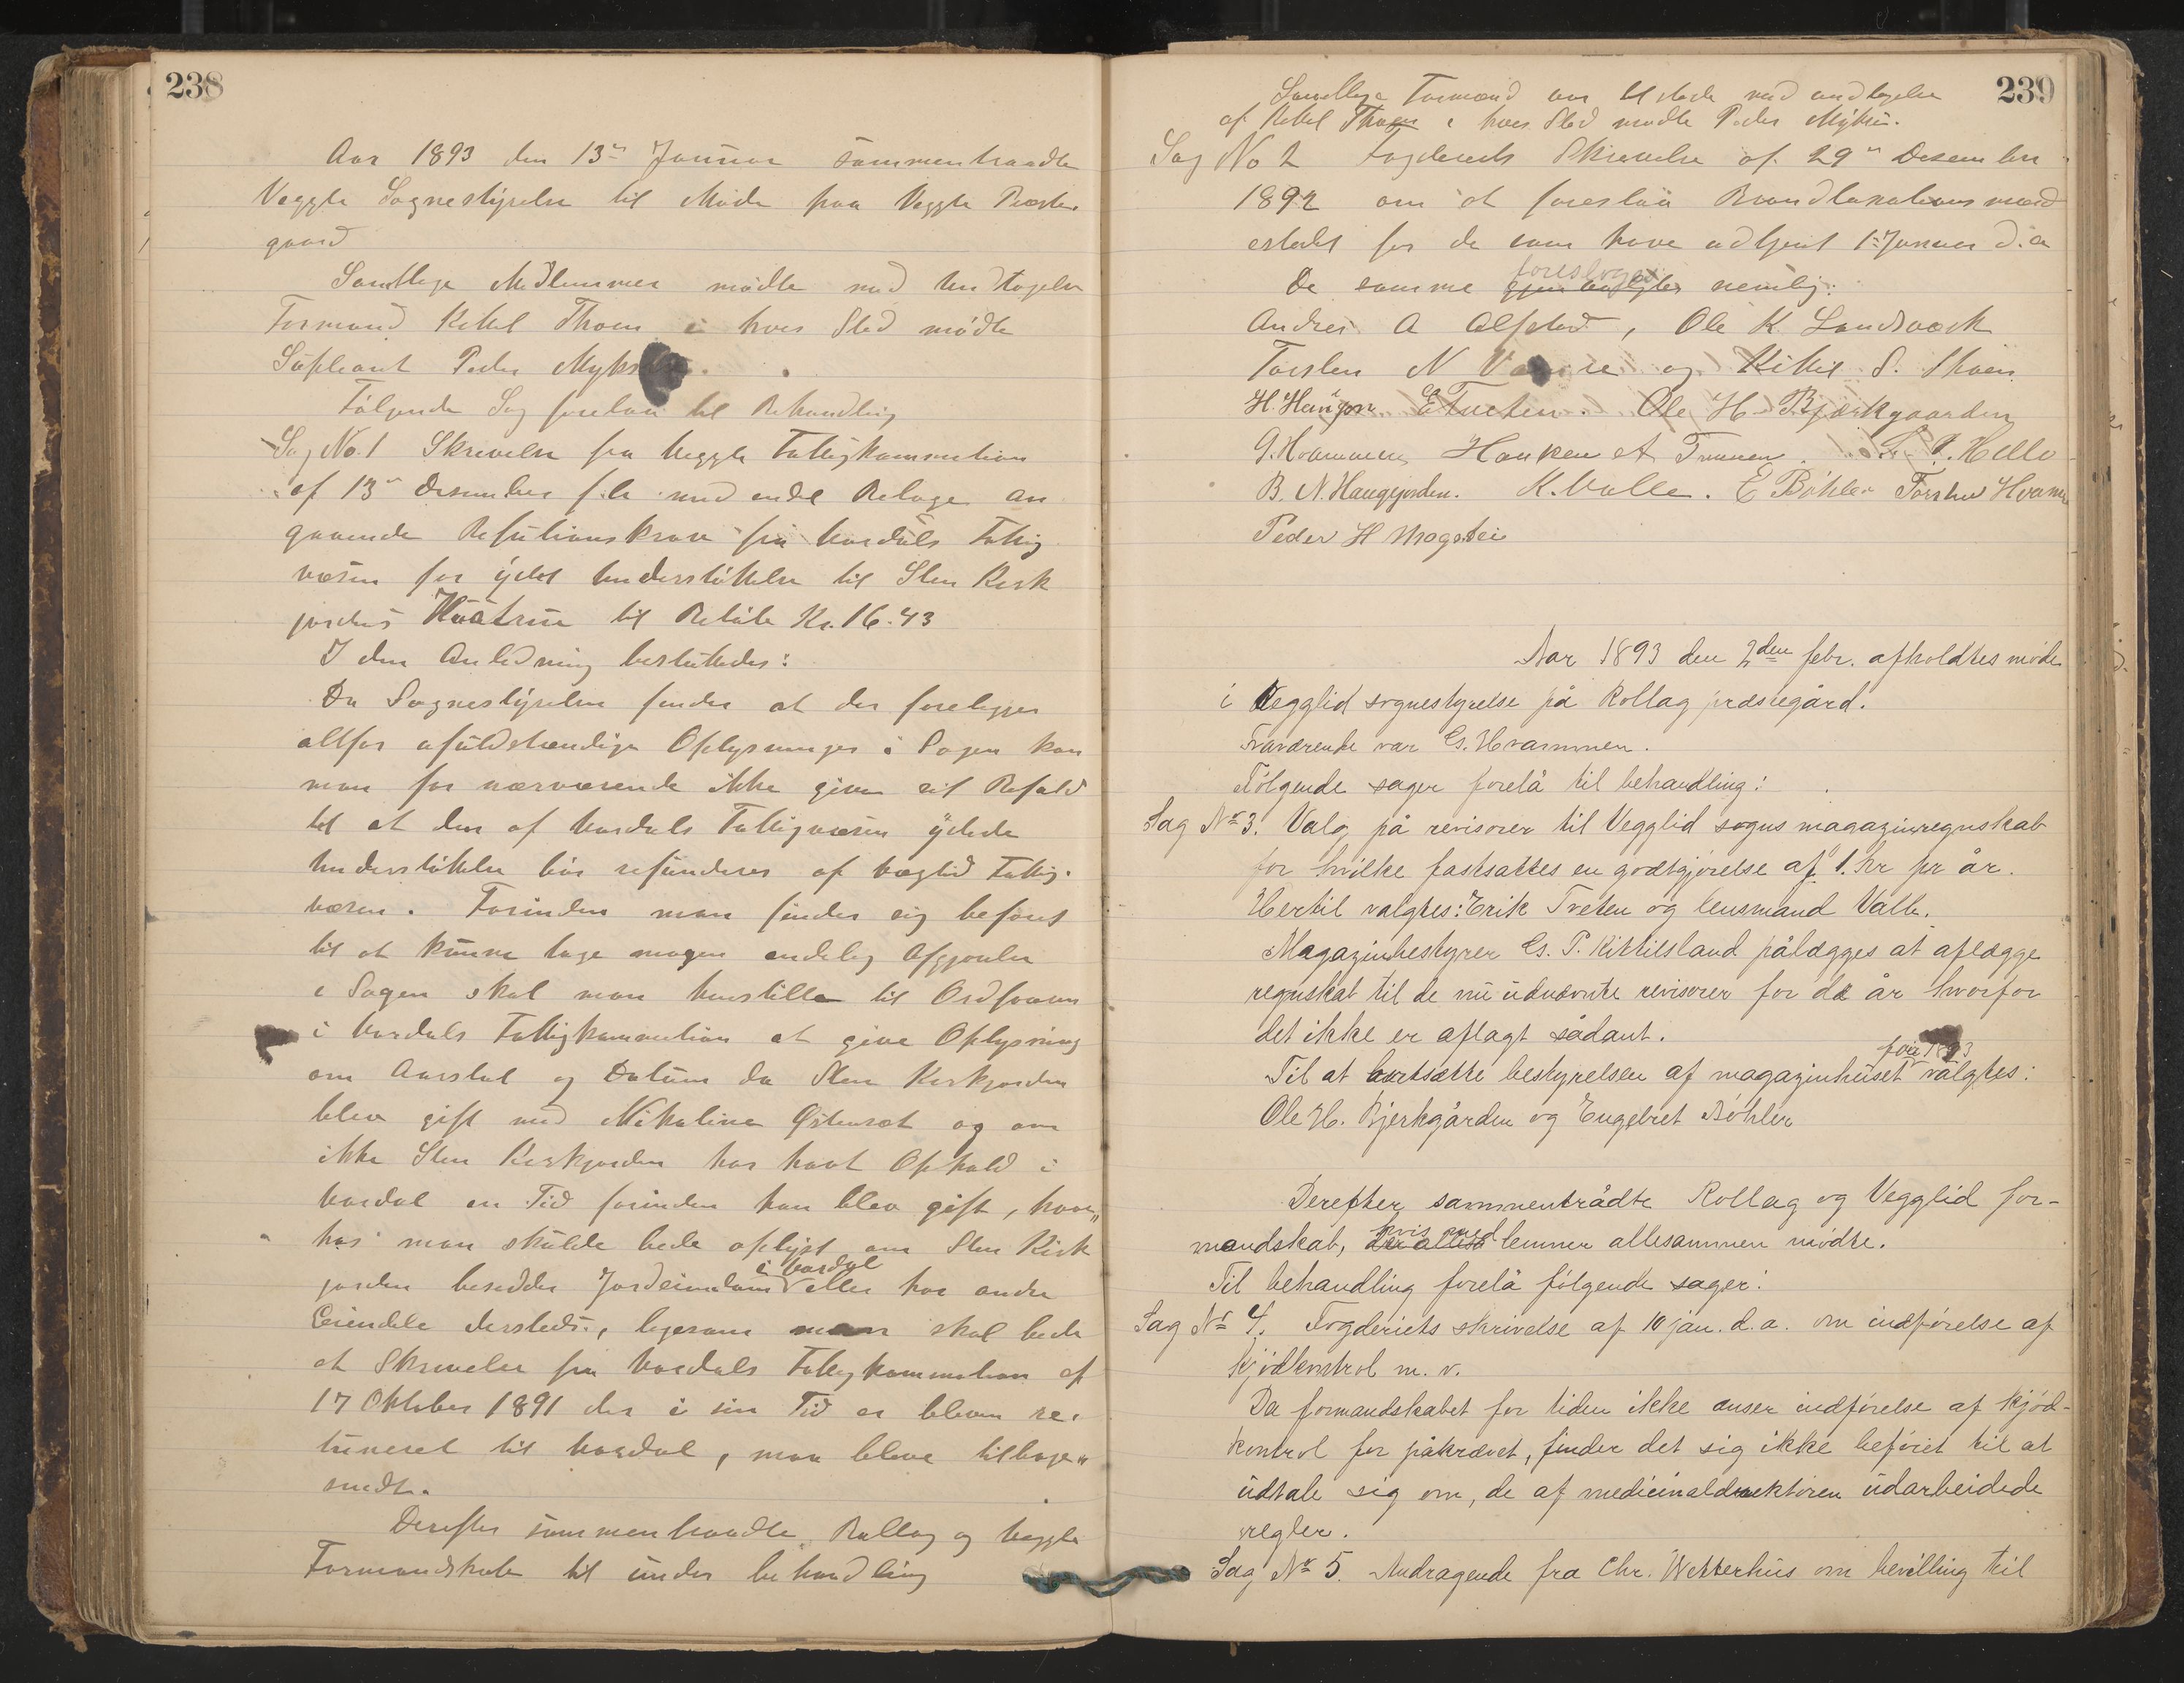 238
Aar 1893 den 13de Januar sammentraadte
Veggli Sognestyrelse til Møde paa Veggli Præste-
gaard
Samtlige Medlemmer mødte med Undtagelse
Formand Kittel Thoen i hvis Sted mødte
Supleant Peder
Følgende Sag forelaa til Behandling
Sag No. 1 Skrivelse fra Veggli Fattigkommission
af 13de Desember f.A. med endel Bilage an
gaaende Refusionskrav fra Vardals Fattig
væsen for ydet Understøttelse til Sten Kirk
jordens Hustrue til Beløb Kr. 16.43
I den Anledning besluttedes:
Da Sognestyrelsen finder at der foreligger
altfor ufuldstændige Oplysninger i Sagen kan
man for nærværende ikke give sit Bifald
til at den af Vardals Fattigvæsen ydede
Understøttelse bør refunderes af Veglid Fattig-
væsen. Forinden man finder sig beføiet
til at kunne tage nogen endelig Afgjørelse
i Sagen skal man henstille til Ordføreren
i Vardals Fattigkommission at give Oplysning
om Aarstal og Datum da Sten Kirkjorden
blev gift med Nikoline Østenset og om
ikke Sten Kirkjorden har havt Ophold i
Vardal en Tid forinden han blev gift, hvor„
hos man skulde bede oplyst om Sten Kirk
i Vardal
jorden besidder Jordeiendom eller har andre
Eiendele dersteds, ligesom man skal bede
at Skrivelse fra Vardals Fattigkommission af
17 Oktober 1891 der i sin Tid er bleven re-
tuneret til Vardal, maa blive tilbage„
sendt.
Derefter sammentraadte Rollag og Veggli
Formandskab til under behandling
239
Samtlige Formænd var tilstede med undtagelse
af Kittel Thoen i hvis Sted mødte Peder
Sag No 2 Fogderiets Skrivelse af 29de Desember
1892 om at foreslaa Brandtaxationsmænd
istedet for de som have udtjent 1ste Januar d.a
foresloges
De samme gjenvalgtes nemlig:
Andres A Alfstad, Ole K. Landsværk
Torsten N og Kittil S. Thoen
H. E Tveten. Ole H. Bjærkgaarden
G. Hvammen Haaken A
B. N. Haugjorden. K. Valle. E Bøhler Torsten
Peder H
Aar 1893 den 2den febr. afholdtes møde
i Vegglid sognestyrelse på Rollag præstegård.
Fraværende var G. Hvammen.
Følgende sager forelå til behandling:
Sag No 3. Valg på revisorer til Vegglid sogns magazinregnskab
for hvilke fastsattes en godtgjørelse af 1. kr pr år.
Hertil valgtes: Erik Tveten og lensmand Valle.
Magazinbestyrer G. P. Kittilsland pålægges at aflægge
regnskab til de nu udnævnte revisorer for de år hvorfor
det ikke er aflagt sådant.
for 1893
Til at bortsætte bestyrelsen af magazinhuset valgtes:
Ole H. Bjerkgården og Engebret Bøhler
Derefter sammentrådte Rollag og Vegglid for-
hvis med
mandskab, lemmer allesammen mødte.
Til behandling forelå følgende sager:
Sag No 4. Fogderiets skrivelse af 10 jan. d.a. om indførelse af
kjødkontrol m.v.
Da formandskabet for tiden ikke anser indførelse af kjød-
kontrol for påkrævet, finder det sig ikke beføiet til at
udtale sig om, de af medicinaldirektøren udarbeidede
regler.
Sag No 5. Andragende fra Chr. Wetterhus om bevilling til